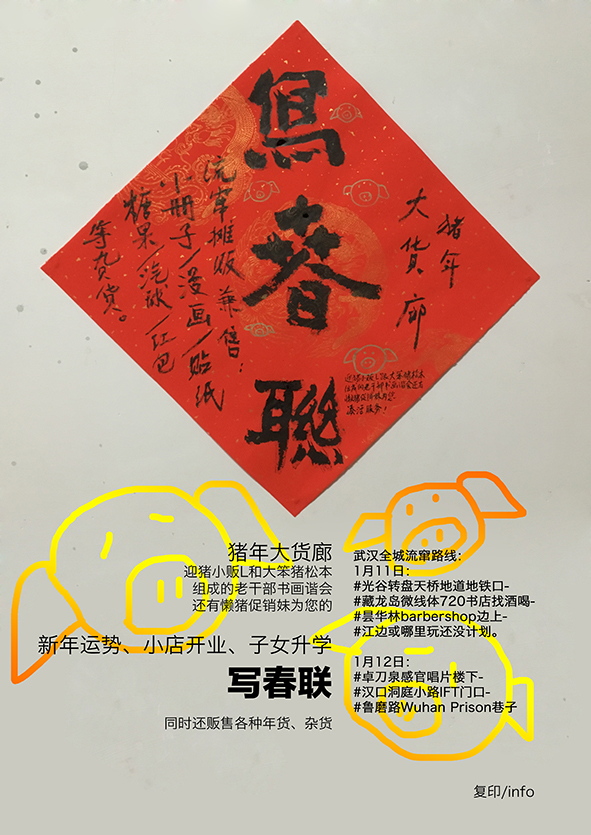 猪年
大货廊
寫春聯
流窜摊贩兼售：
小册子/漫画/贴纸
糖果/汽球/红包
迎猪小贩L和大笨猪松本
组成的老干部书画谐会还有
懒猪促销妹为您
凑活服务！
猪年大货廊
迎猪小贩L和大笨猪松本
组成的老干部书画谐会
还有懒猪促销妹为您的
新年运势、小店开业、子女升学
写春联
同时还贩售各种年货、杂货
武汉全城流窜路线：
1月11日：
#光谷转盘天桥地道地铁口-
#藏龙岛微线体720书店找酒喝-
#昙华林barbershop边上-
#江边或哪里玩还没计划。
1月12日：
#卓刀泉感官唱片楼下-
#汉口洞庭小路IFT门口-
#鲁磨路Wuhan Prison巷子
复印/info